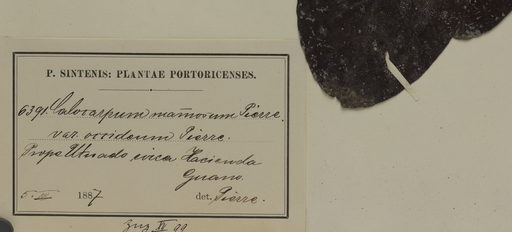 P. SINTENIS: PLANTAE PORTORICENSES.
6391. Calocarpum mam̄osum Pierre.
var. occideum Pierre.
Prope Utuado circa Hacienda
Guano.
5. III 1887 det. Pierre.
IV 99